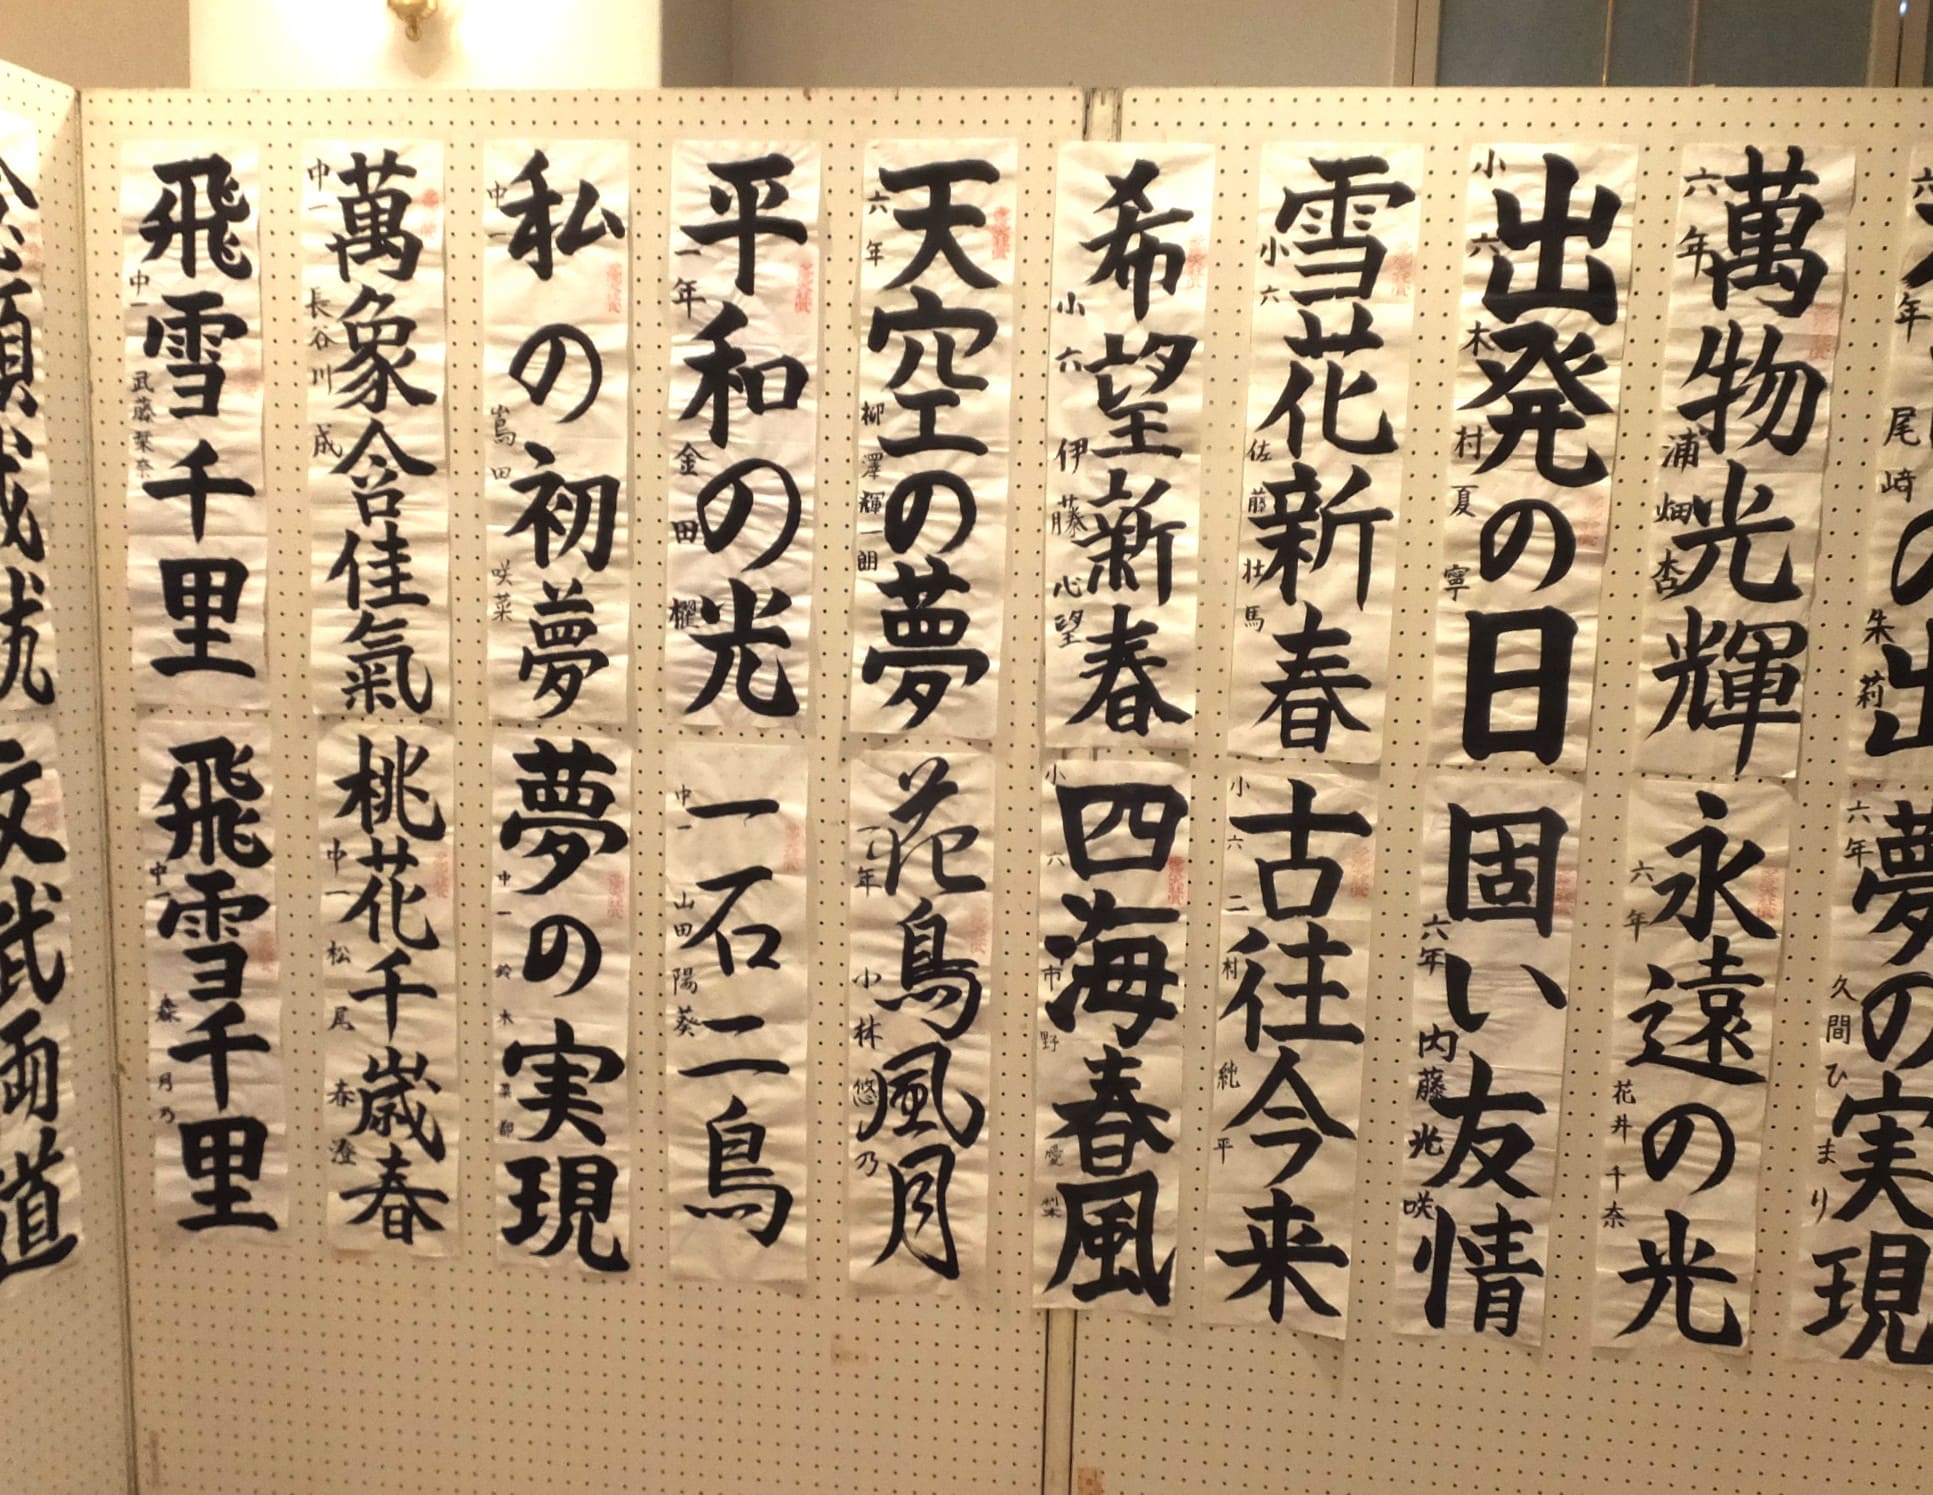 萬物光輝
六年 浦畑杏
出発の日
小六 木村夏寧
雪花新春
小六 佐藤壮馬
希望新春
小六 伊藤心望
天空の夢
六年 柳澤輝一朗
平和の光
一年 金田櫂
私の初夢
中一 嶌田咲菜
萬象含佳氣
中一 長谷川成
飛雪千里
中一 武藤栞奈
夢の実現
六年 久間ひまり
永遠の光
六年 花井千奈
固い友情
六年 内藤光咲
古往今来
小六 二村純平
四海春風
小六 市野愛梨
花鳥風月
年 小林悠乃
一石二鳥
中一 山田陽葵
夢の実現
中一 鈴木
桃花千歳春
中一 松尾春澄
飛雪千里
中一 森月乃
文武両道
年 尾崎朱莉